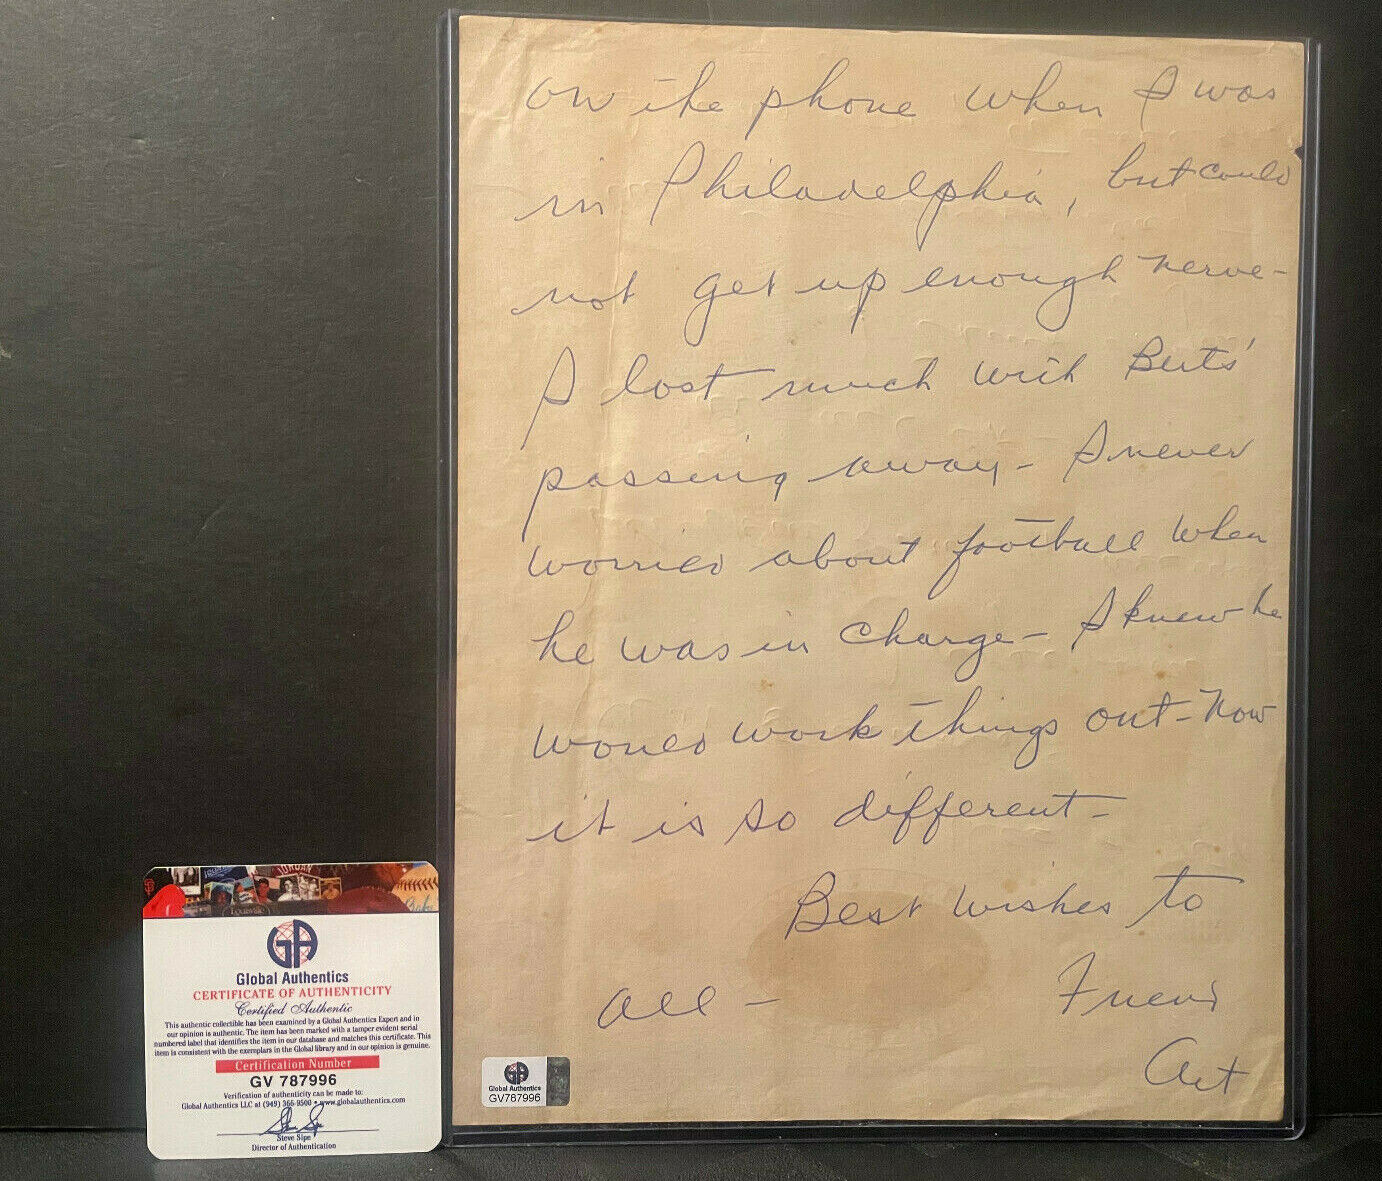 on the phone when I was
in Philadelphia, but could
not get up enough nerve-
I lost much with Berts'
passing away - I never
worried about football when
he was in charge - I knew he
would work things out - Now
it is so different -
Best Wishes to
all -
Friend
Art
GA
Global Authentics
CERTIFICATE OF AUTHENTICITY
Certified Authentic
This authentic collectible has been examined by a Global Authentics Expert and in
our opinion is authentic. The item has been marked with a tamper evident serial
numbered label that identifies the item in our database and matches this certificate. This
item is consistent with the exemplars in the Global library and in our opinion is genuine.
Certification Number
GV 787996
Verification of authenticity can be made to:
Global Authentics LLC at (949) 366-9500 • www.globalauthentics.com
Steve Sipe
Director of Authentication
Global Authentics
GV787996